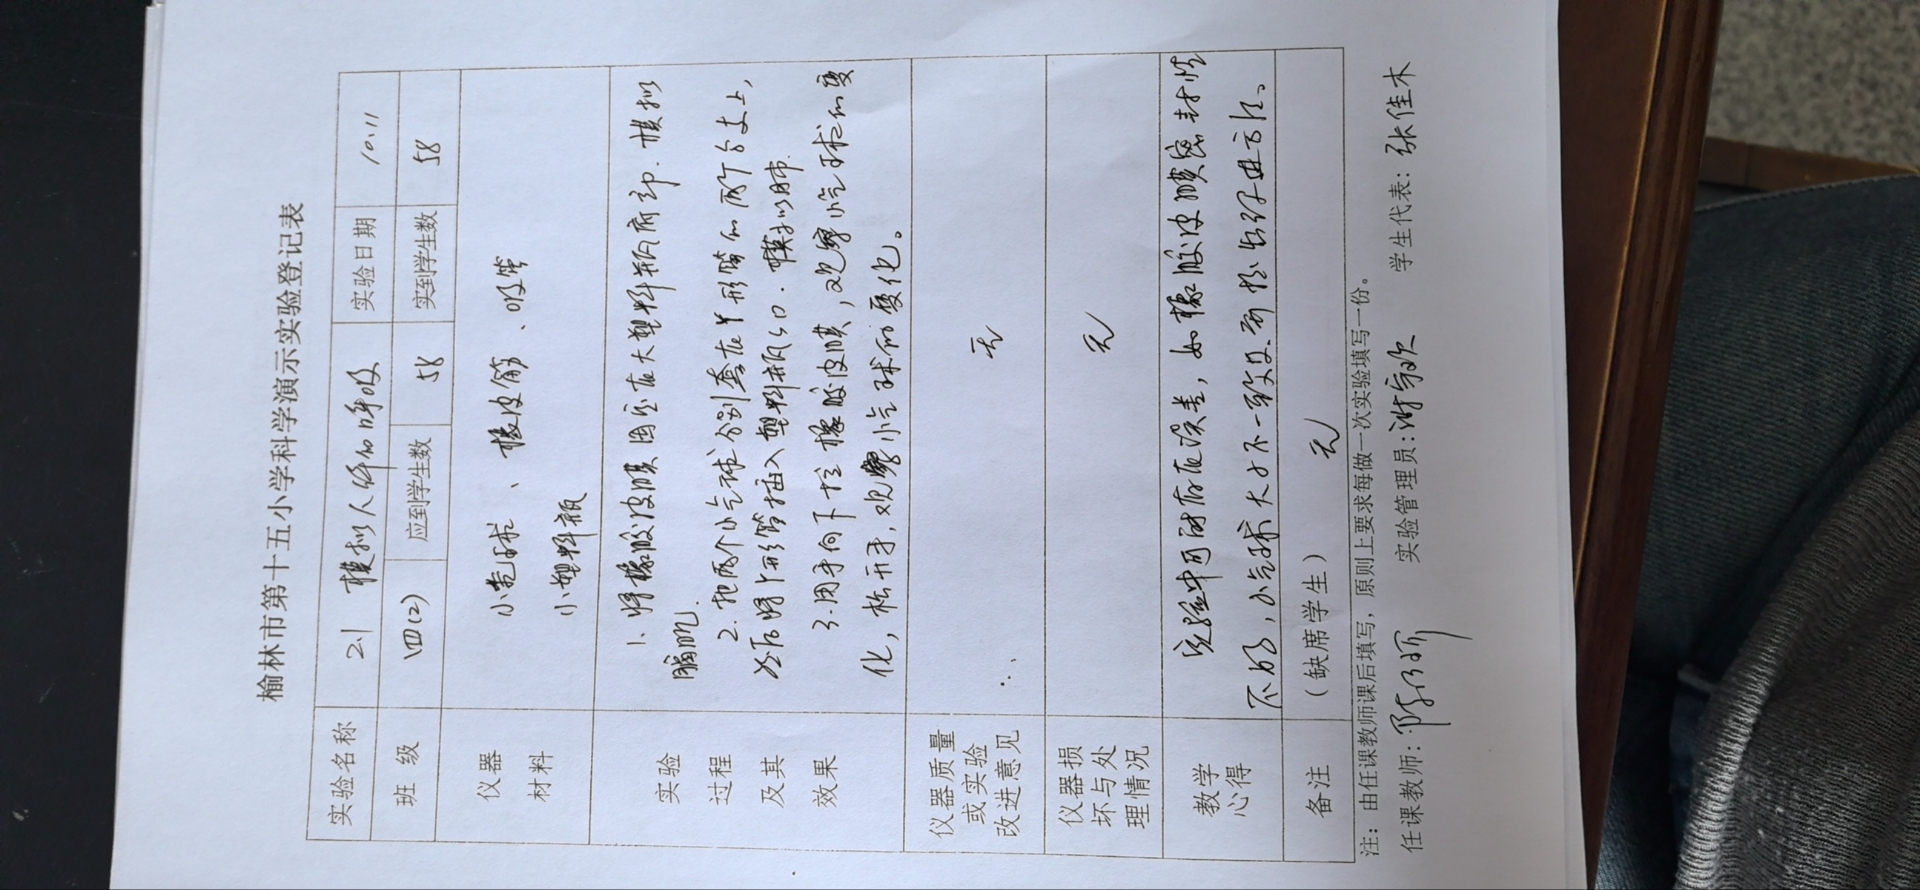 榆林市第十五小学科学演示实验登记表
实验名称 2.1 模拟人体的呼吸 实验日期 10.11
班级 四(2) 应到学生数 58 实到学生数 58
仪器材料 小气球、橡皮筋、吸管
小塑料瓶
实验过程及其效果 1.将橡胶皮膜固定在大塑料瓶底部.模拟
膈肌.
2.把两个小气球分别套在Y形管的两个分支上,
然后将Y形管插入塑料瓶口.模拟肺.
3.用手向下拉橡胶皮膜,观察小气球的变
化,松开手,观察小气球的变化。
仪器质量或实验改进意见 无
仪器损坏与处理情况 无
教学心得 实验中可能存在误差,如橡胶皮膜密封性
不好,小气球大小不一致及,需想出好进方法。
备注 (缺席学生) 无
注:由任课教师课后填写,原则上要求每做一次实验填写一份。
任课教师: 实验管理员: 学生代表:张佳木